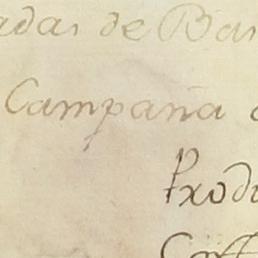 adas de Bas
Campaña
Produ